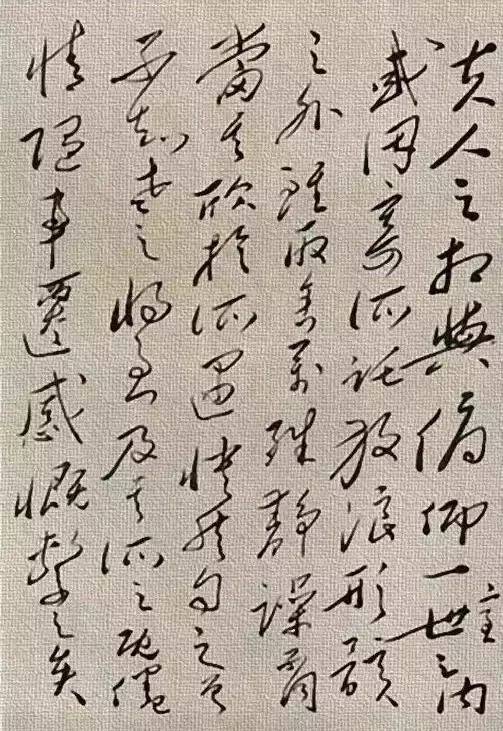 夫人之相與俯仰一世一室之內
或因寄所託放浪形骸
之外雖取舍萬殊靜躁不同
當其欣於所遇快然自足
不知老之將至及其所之既倦
情隨事遷感慨繫之矣